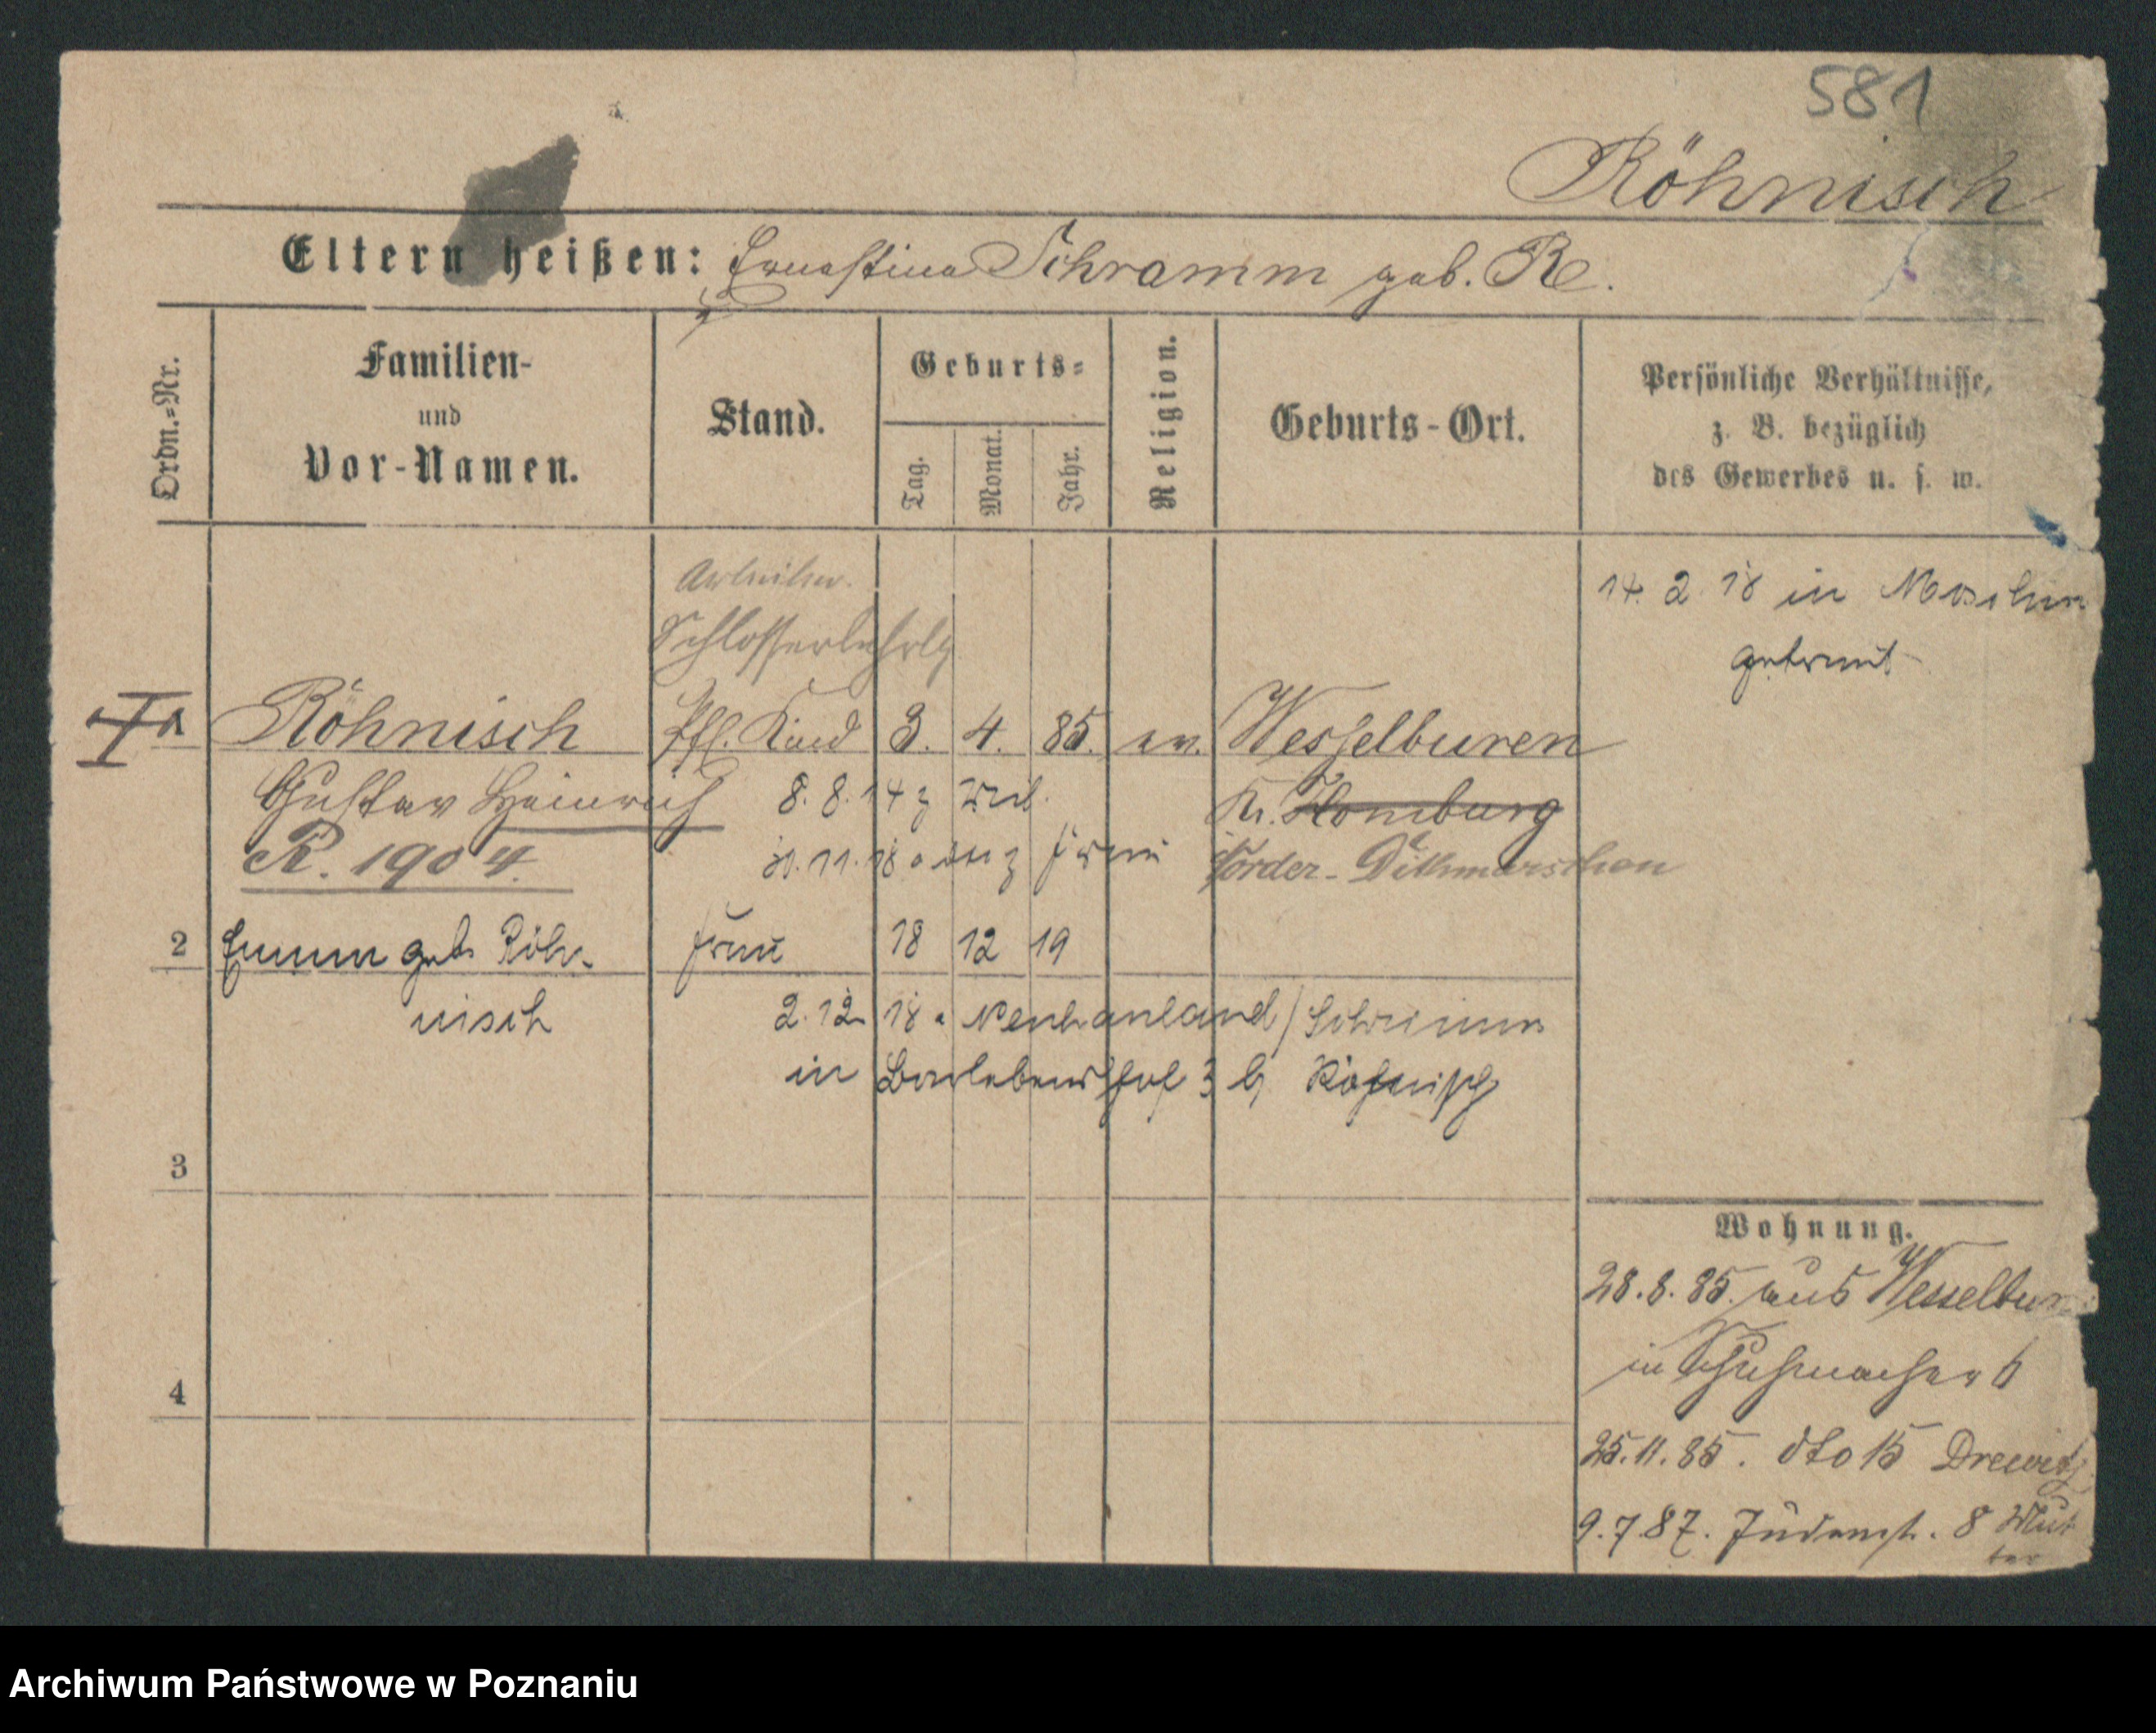 581
Röhnisch
Eltern heißen: Ernestine Schramm geb. Rö.
Ordn.=Nr.
Familien-
und
Vor-Namen.
Stand.
Geburts=
Tag.
Monat.
Jahr.
Religion.
Geburts-Ort.
Persönliche Verhältnisse,
z. B. bezüglich
des Gewerbes u. s. w.
Arbeiter.
Schlosserlehrlg
14. 2. 18 in Moschin
getraut
Röhnisch Pfl. Kind 3. 4. 85. ev. Wesselburen
Gustav Heinrich 8. 8. 14 z Mil. Kr. Homburg
R. 1904. 11. 18 z Frau Norder-Dithmarschen
2 Emma geb. Röh- Frau 18 12 19
nisch 2. 12 18 a Schrimm
in 3 b Röhnisch
3
4
Wohnung.
28. 8. 85. aus Wesselbur
in Schuhmacher 6
25. 11. 85. dto 15 Drewitz
9. 7. 87. Judenst. 8 Mut
ter
Archiwum Państwowe w Poznaniu